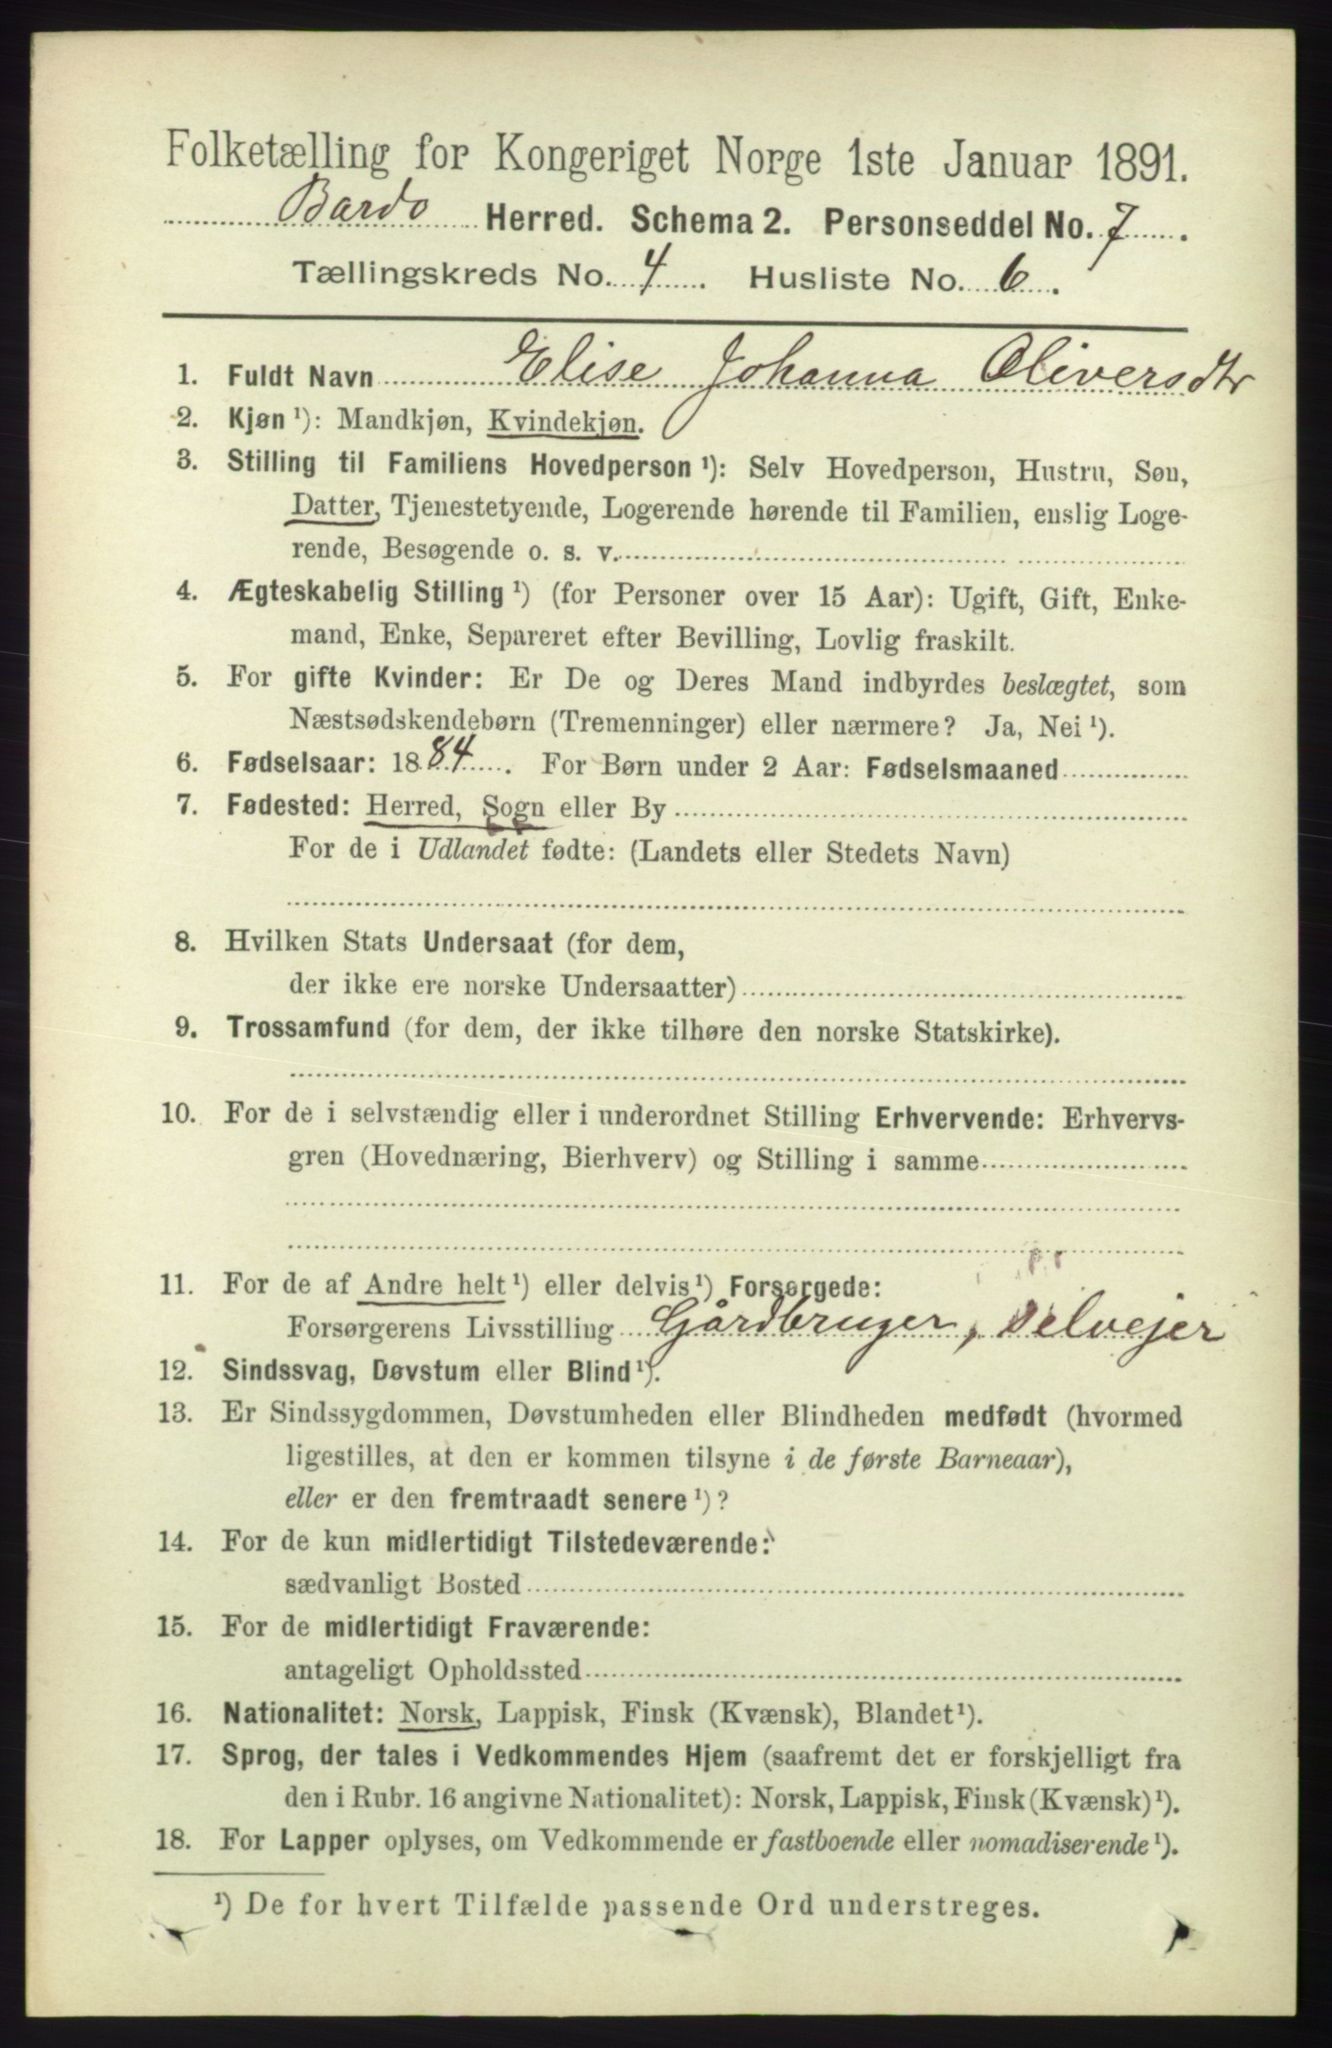 Folketælling for Kongeriget Norge 1ste Januar 1891.
Bardo Herred. Schema 2. Personseddel No. 7.
Tællingskreds No. 4. Husliste No. 6.
1. Fuldt Navn Elise Johanna Oliversdtr
2. Kjøn ¹): Mandkjøn, Kvindekjøn.
3. Stilling til Familiens Hovedperson ¹): Selv Hovedperson, Hustru, Søn,
Datter, Tjenestetyende, Logerende hørende til Familien, enslig Loge-
rende, Besøgende o. s. v.
4. Ægteskabelig Stilling ¹) (for Personer over 15 Aar): Ugift, Gift, Enke-
mand, Enke, Separeret efter Bevilling, Lovlig fraskilt.
5. For gifte Kvinder: Er De og Deres Mand indbyrdes beslægtet, som
Næstsødskendebørn (Tremenninger) eller nærmere? Ja, Nei ¹).
6. Fødselsaar: 1884. For Børn under 2 Aar: Fødselsmaaned
7. Fødested: Herred, Sogn eller By
For de i Udlandet fødte: (Landets eller Stedets Navn)
8. Hvilken Stats Undersaat (for dem,
der ikke ere norske Undersaatter)
9. Trossamfund (for dem, der ikke tilhøre den norske Statskirke).
10. For de i selvstændig eller i underordnet Stilling Erhvervende: Erhvervs-
gren (Hovednæring, Bierhverv) og Stilling i samme
11. For de af Andre helt ¹) eller delvis ¹) Forsørgede:
Forsørgerens Livsstilling Gårdbruger, selvejer
12. Sindssvag, Døvstum eller Blind ¹).
13. Er Sindssygdommen, Døvstumheden eller Blindheden medfødt (hvormed
ligestilles, at den er kommen tilsyne i de første Barneaar),
eller er den fremtraadt senere ¹)?
14. For de kun midlertidigt Tilstedeværende:
sædvanligt Bosted
15. For de midlertidigt Fraværende:
antageligt Opholdssted
16. Nationalitet: Norsk, Lappisk, Finsk (Kvænsk), Blandet ¹).
17. Sprog, der tales i Vedkommendes Hjem (saafremt det er forskjelligt fra
den i Rubr. 16 angivne Nationalitet): Norsk, Lappisk, Finsk (Kvænsk) ¹).
18. For Lapper oplyses, om Vedkommende er fastboende eller nomadiserende ¹).
¹) De for hvert Tilfælde passende Ord understreges.